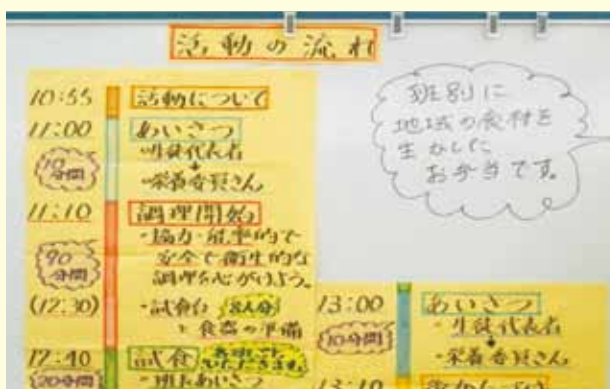 活動の流れ
10:55 活動について
11:00 あいさつ
・生徒代表者
10分間
・栄養委員さん
11:10 調理開始
・協力・能率的で
安全で衛生的な
90分間
調理を心がけよう。
(12:30) ・試食台 (8人分)
と食器の準備
12:40 試食
(20分間) ・班長あいさつ
班別に
地域の食材を
生かした
お弁当です。
13:00 あいさつ
・生徒代表者
10分間
・栄養委員さん
13:10